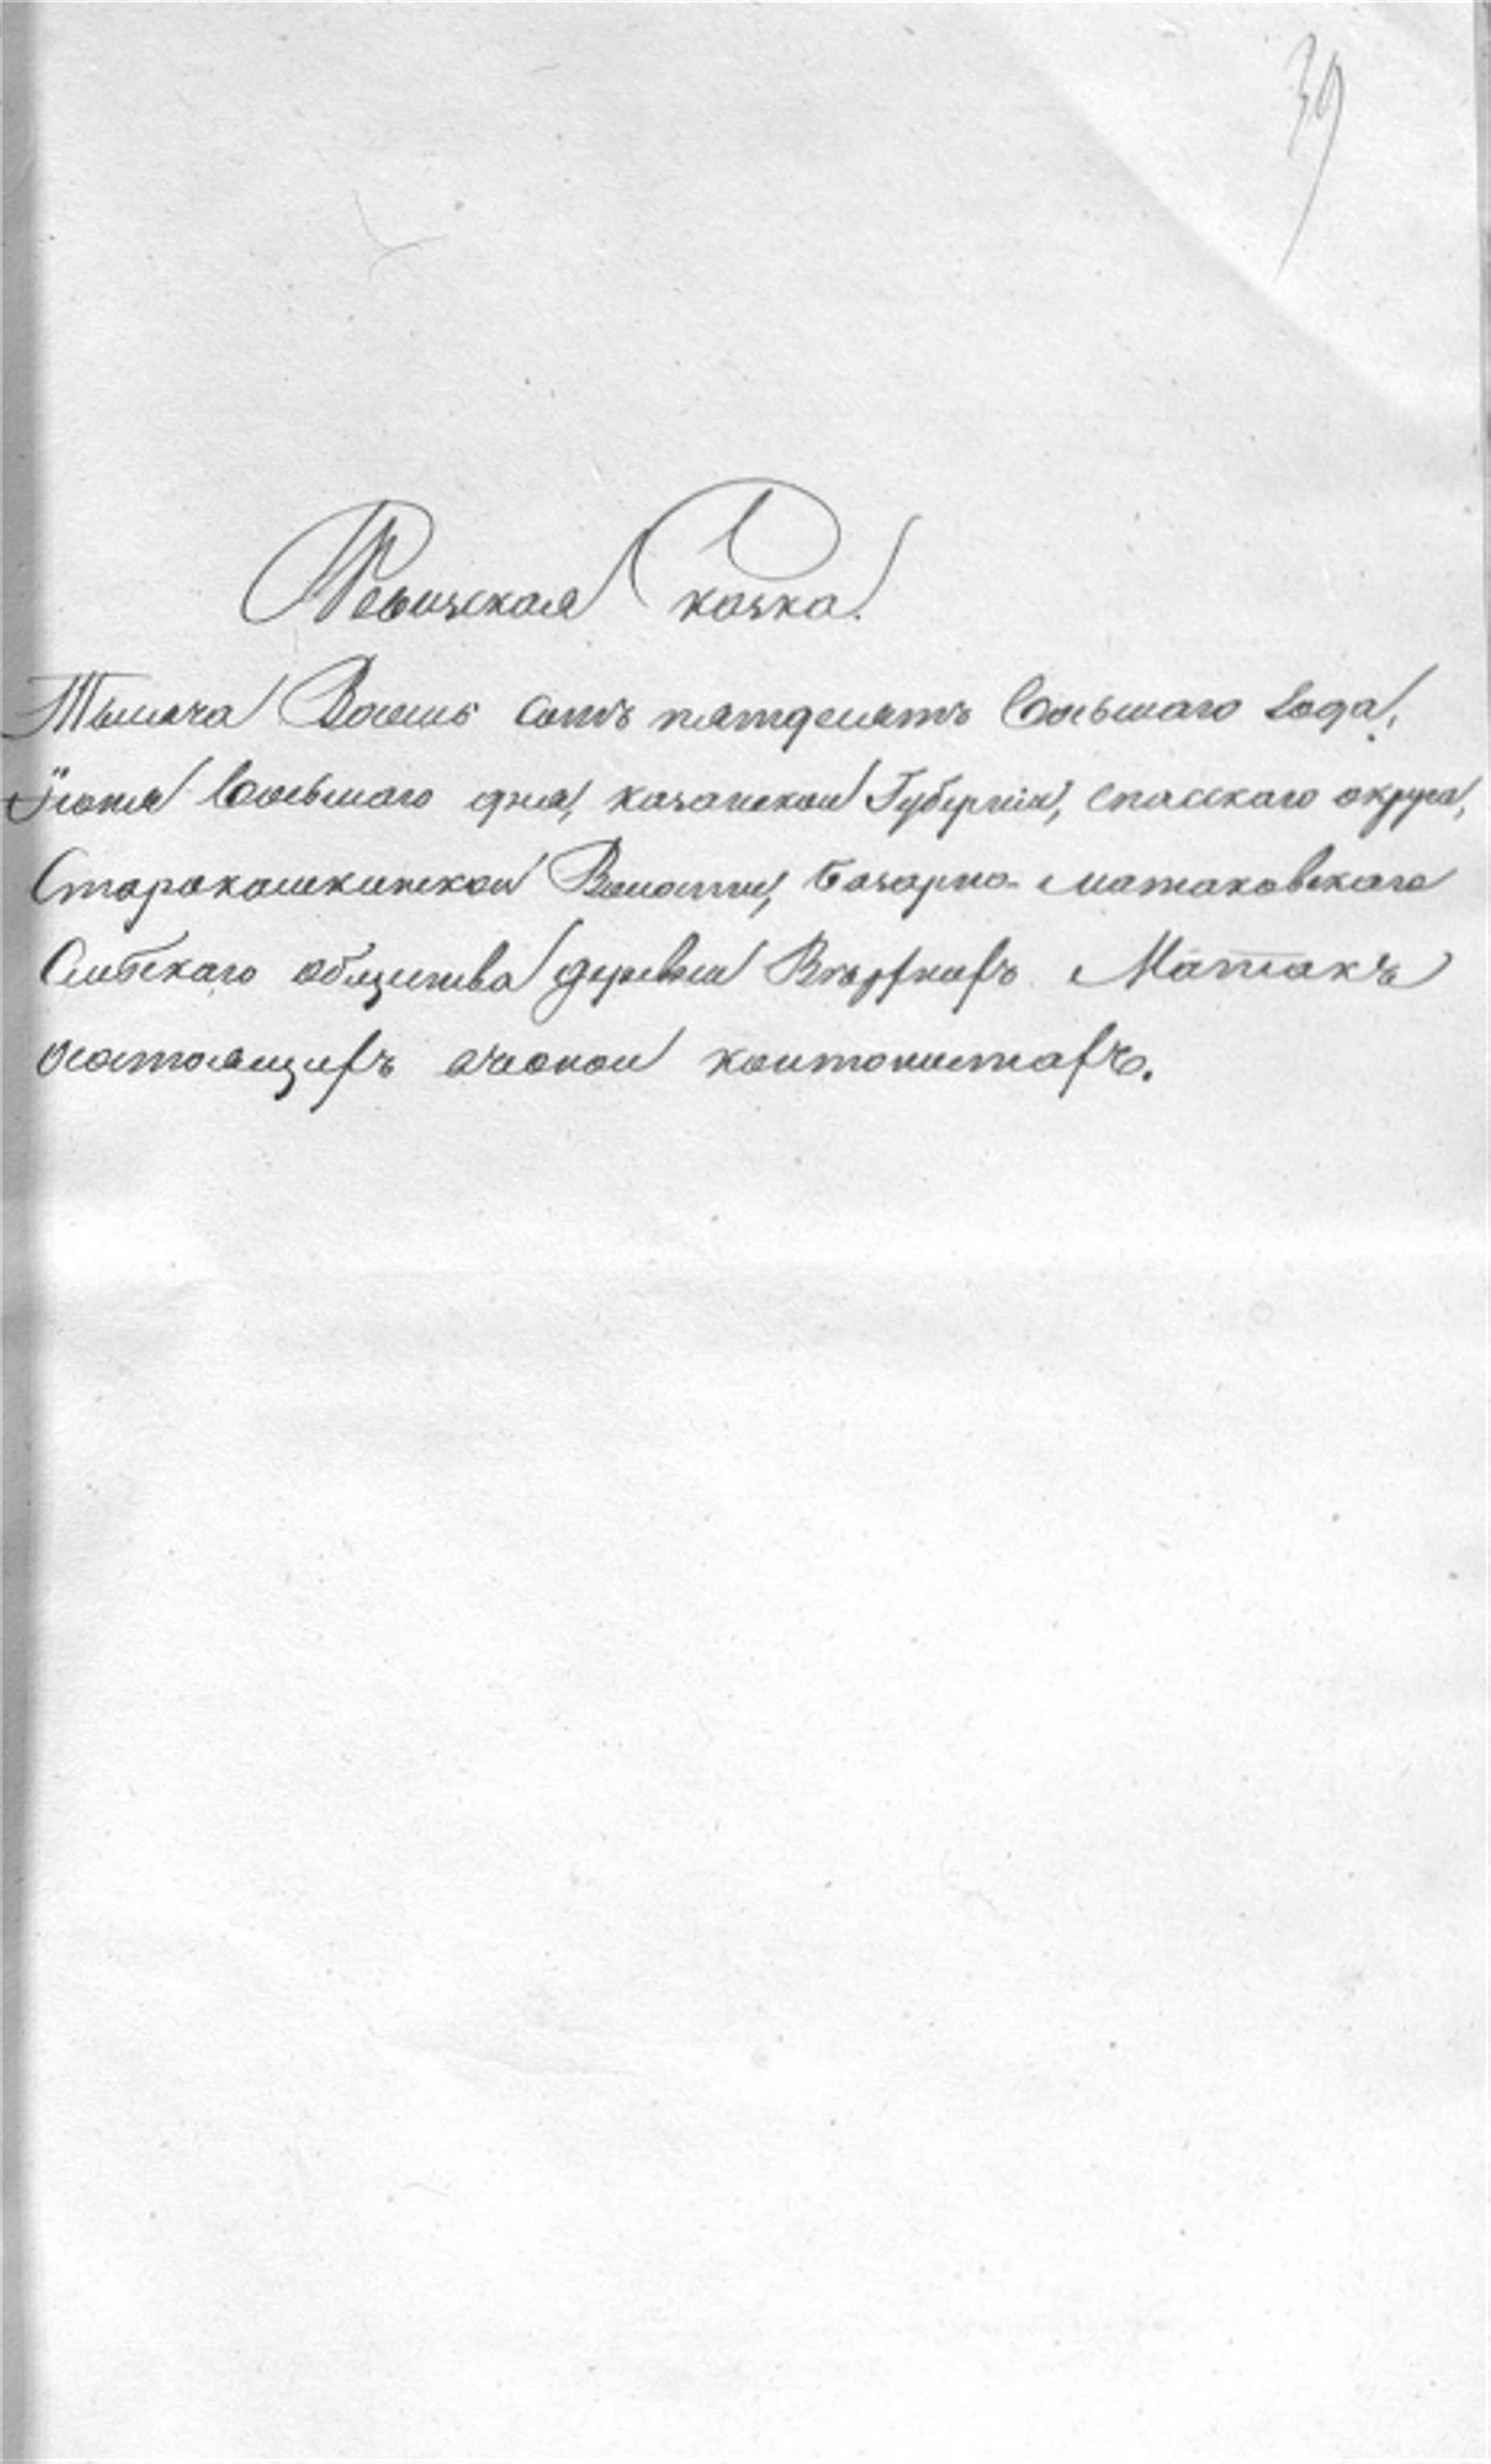 39
Ревизская Сказка.
Тысяча Восемь сотъ пятдесятъ Восьмаго Года,
Іюня Восьмаго дня, казанской Губерніи, спасскаго округа,
Старокамкинской Волости, Базарно-матаковскаго
Сельскаго общества деревни Верхнихъ Матакъ
состоящихъ